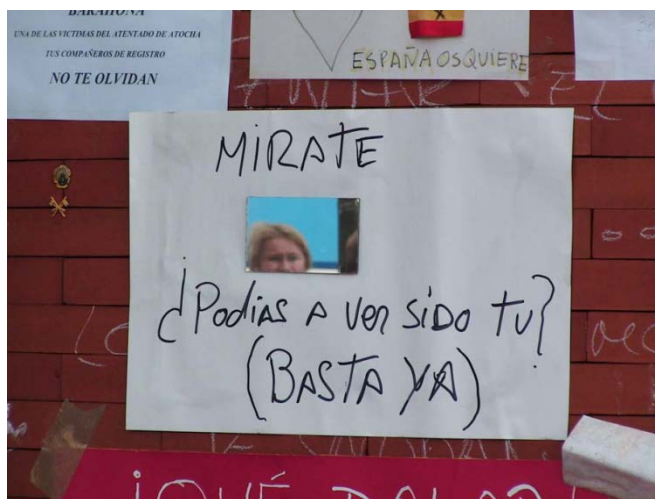 BARAHONA
UNA DE LAS VICTIMAS DEL ATENTADO DE ATOCHA
TUS COMPAÑEROS DE REGISTRO
NO TE OLVIDAN
ESPAÑA OS QUIERE
MIRATE
¿Podias A ver sido tu?
(BASTA YA)
¡QUÉ DOLOR!